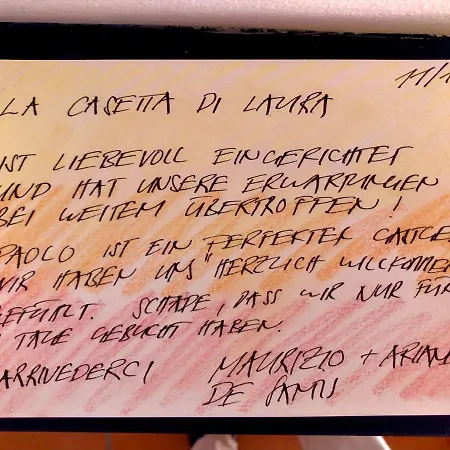 11/1
LA CASETTA DI LAURA
IST LIEBEVOLL EINGERICHTET
UND HAT UNSERE ERWARTUNGEN
BEI WEITEM ÜBERTROFFEN!
PAOLO IST EIN PERFEKTER GASTGE
WIR HABEN UNS HERZLICH WILLKOMMEN
GEFÜHLT. SCHADE, DASS WIR NUR FÜR
TAGE GEBUCHT HABEN.
ARRIVEDERCI MAURIZIO + ARIAN
DE